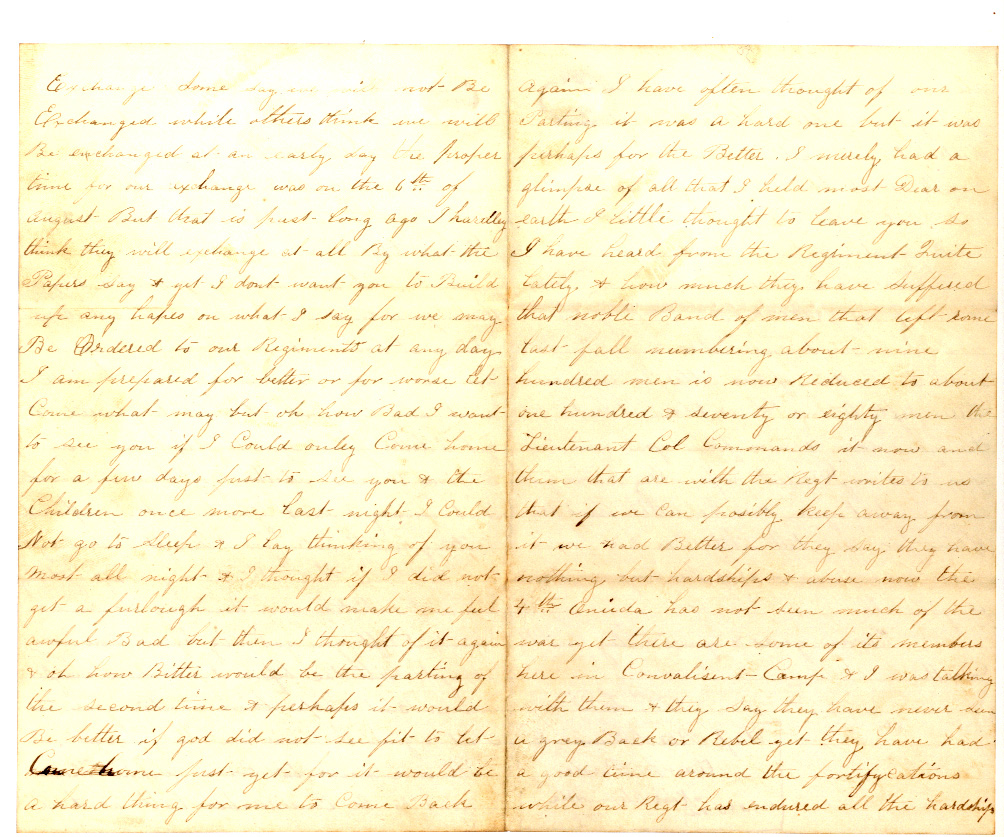 Exchange Some say we will not Be
Exchanged while others think we will
Be exchanged at an early day the proper
time for our exchange was on the 6th of
august But that is past long ago I hardley
think they will exchange at all By what the
Papers Say & yet I dont want you to Build
up any hopes on what I say for we may
Be Ordered to our Regiments at any day
I am prepared for better or for worse let
Come what may but oh how Bad I want
to see you if I Could onley Come home
for a few days just to see you & the
Children once more last night I Could
Not go to Sleep & I lay thinking of you
most all night & I thought if I did not
get a furlough it would make me feel
awful Bad but then I thought of it again
& oh how Bitter would be the parting of
the second time & perhaps it would
Be better if god did not see fit to let
me just yet for it would be
a hard thing for me to Come Back
again I have often thought of our
Parting it was a hard one but it was
perhaps for the Better. I merely had a
glimpse of all that I held most Dear on
earth I little thought to leave you so
I have heard from the Regiment Quite
lately & how much they have Suffered
that noble Band of men that left home
last fall numbering about nine
hundred men is now Reduced to about
one hundred & seventy or eighty men the
Lieutenant Col Commands it now and
them that are with the Regt writes to us
that if we can posibly keep away from
it we had Better for they say they have
nothing but hardships & abuse now the
4th Oneida has not seen much of the
war yet there are some of its members
here in Convalisent Camp & I was talking
with them & they say they have never seen
a grey Back or Rebel yet they have had
a good time around the fortifycations
while our Regt has endured all the hardship